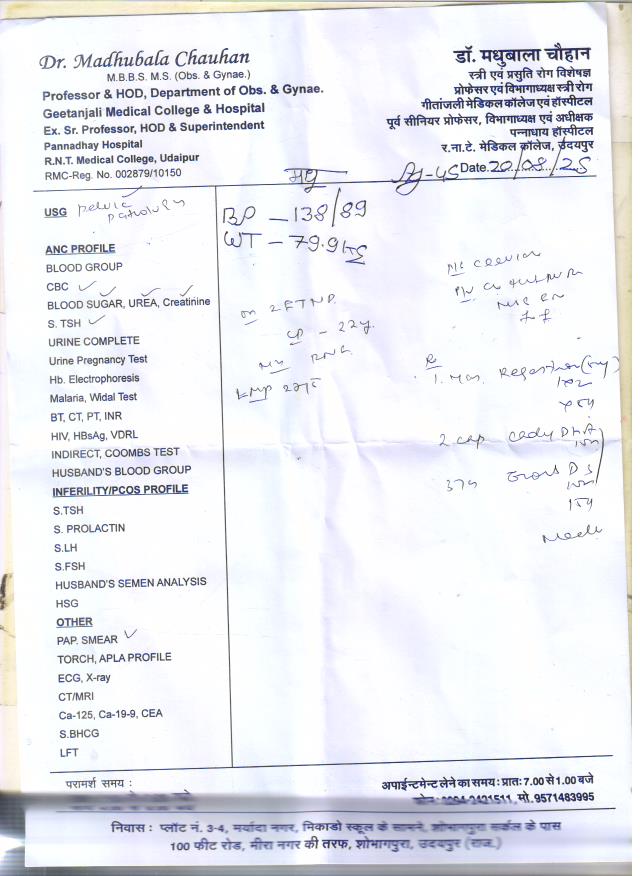 Dr. Madhubala Chauhan
M.B.B.S. M.S. (Obs. & Gynae.)
Professor & HOD, Department of Obs. & Gynae.
Geetanjali Medical College & Hospital
Ex. Sr. Professor, HOD & Superintendent
Pannadhay Hospital
R.N.T. Medical College, Udaipur
RMC-Reg. No. 002879/10150
डॉ. मधुबाला चौहान
स्त्री एवं प्रसुति रोग विशेषज्ञ
प्रोफेसर एवं विभागाध्यक्ष स्त्री रोग
गीतांजली मेडिकल कॉलेज एवं हॉस्पीटल
पूर्व सीनियर प्रोफेसर, विभागाध्यक्ष एवं अधीक्षक
पन्नाधाय हॉस्पीटल
र.ना.टे. मेडिकल कॉलेज, उदयपुर
मधु
Date. 20/08/25
USG pelvic
BP - 138/89
WT - 79.9 kg
ANC PROFILE
BLOOD GROUP
CBC ✓
BLOOD SUGAR, UREA, Creatinine
S. TSH ✓
URINE COMPLETE
Urine Pregnancy Test
Hb. Electophoresis
Malaria, Widal Test
BT, CT, PT, INR
HIV, HBsAg, VDRL
INDIRECT, COOMBS TEST
HUSBAND'S BLOOD GROUP
INFERILITY/PCOS PROFILE
S.TSH
S. PROLACTIN
S.LH
S.FSH
HUSBAND'S SEMEN ANALYSIS
HSG
OTHER
PAP. SMEAR ✓
TORCH, APLA PROFILE
ECG, X-ray
CT/MRI
Ca-125, Ca-19-9, CEA
S.BHCG
LFT
2 FTND
- 22y
LMP
2 cap
परामर्श समय :
अपाईन्टमेन्ट लेने का समय : प्रातः 7.00 से 1.00 बजे
मो. 9571483995
निवास : प्लॉट नं. 3-4, मर्यादा नगर, मिकाडो स्कूल के सामने, शोभागपुरा सर्कल के पास
100 फीट रोड, मीरा नगर की तरफ, शोभागपुरा, उदयपुर (राज.)